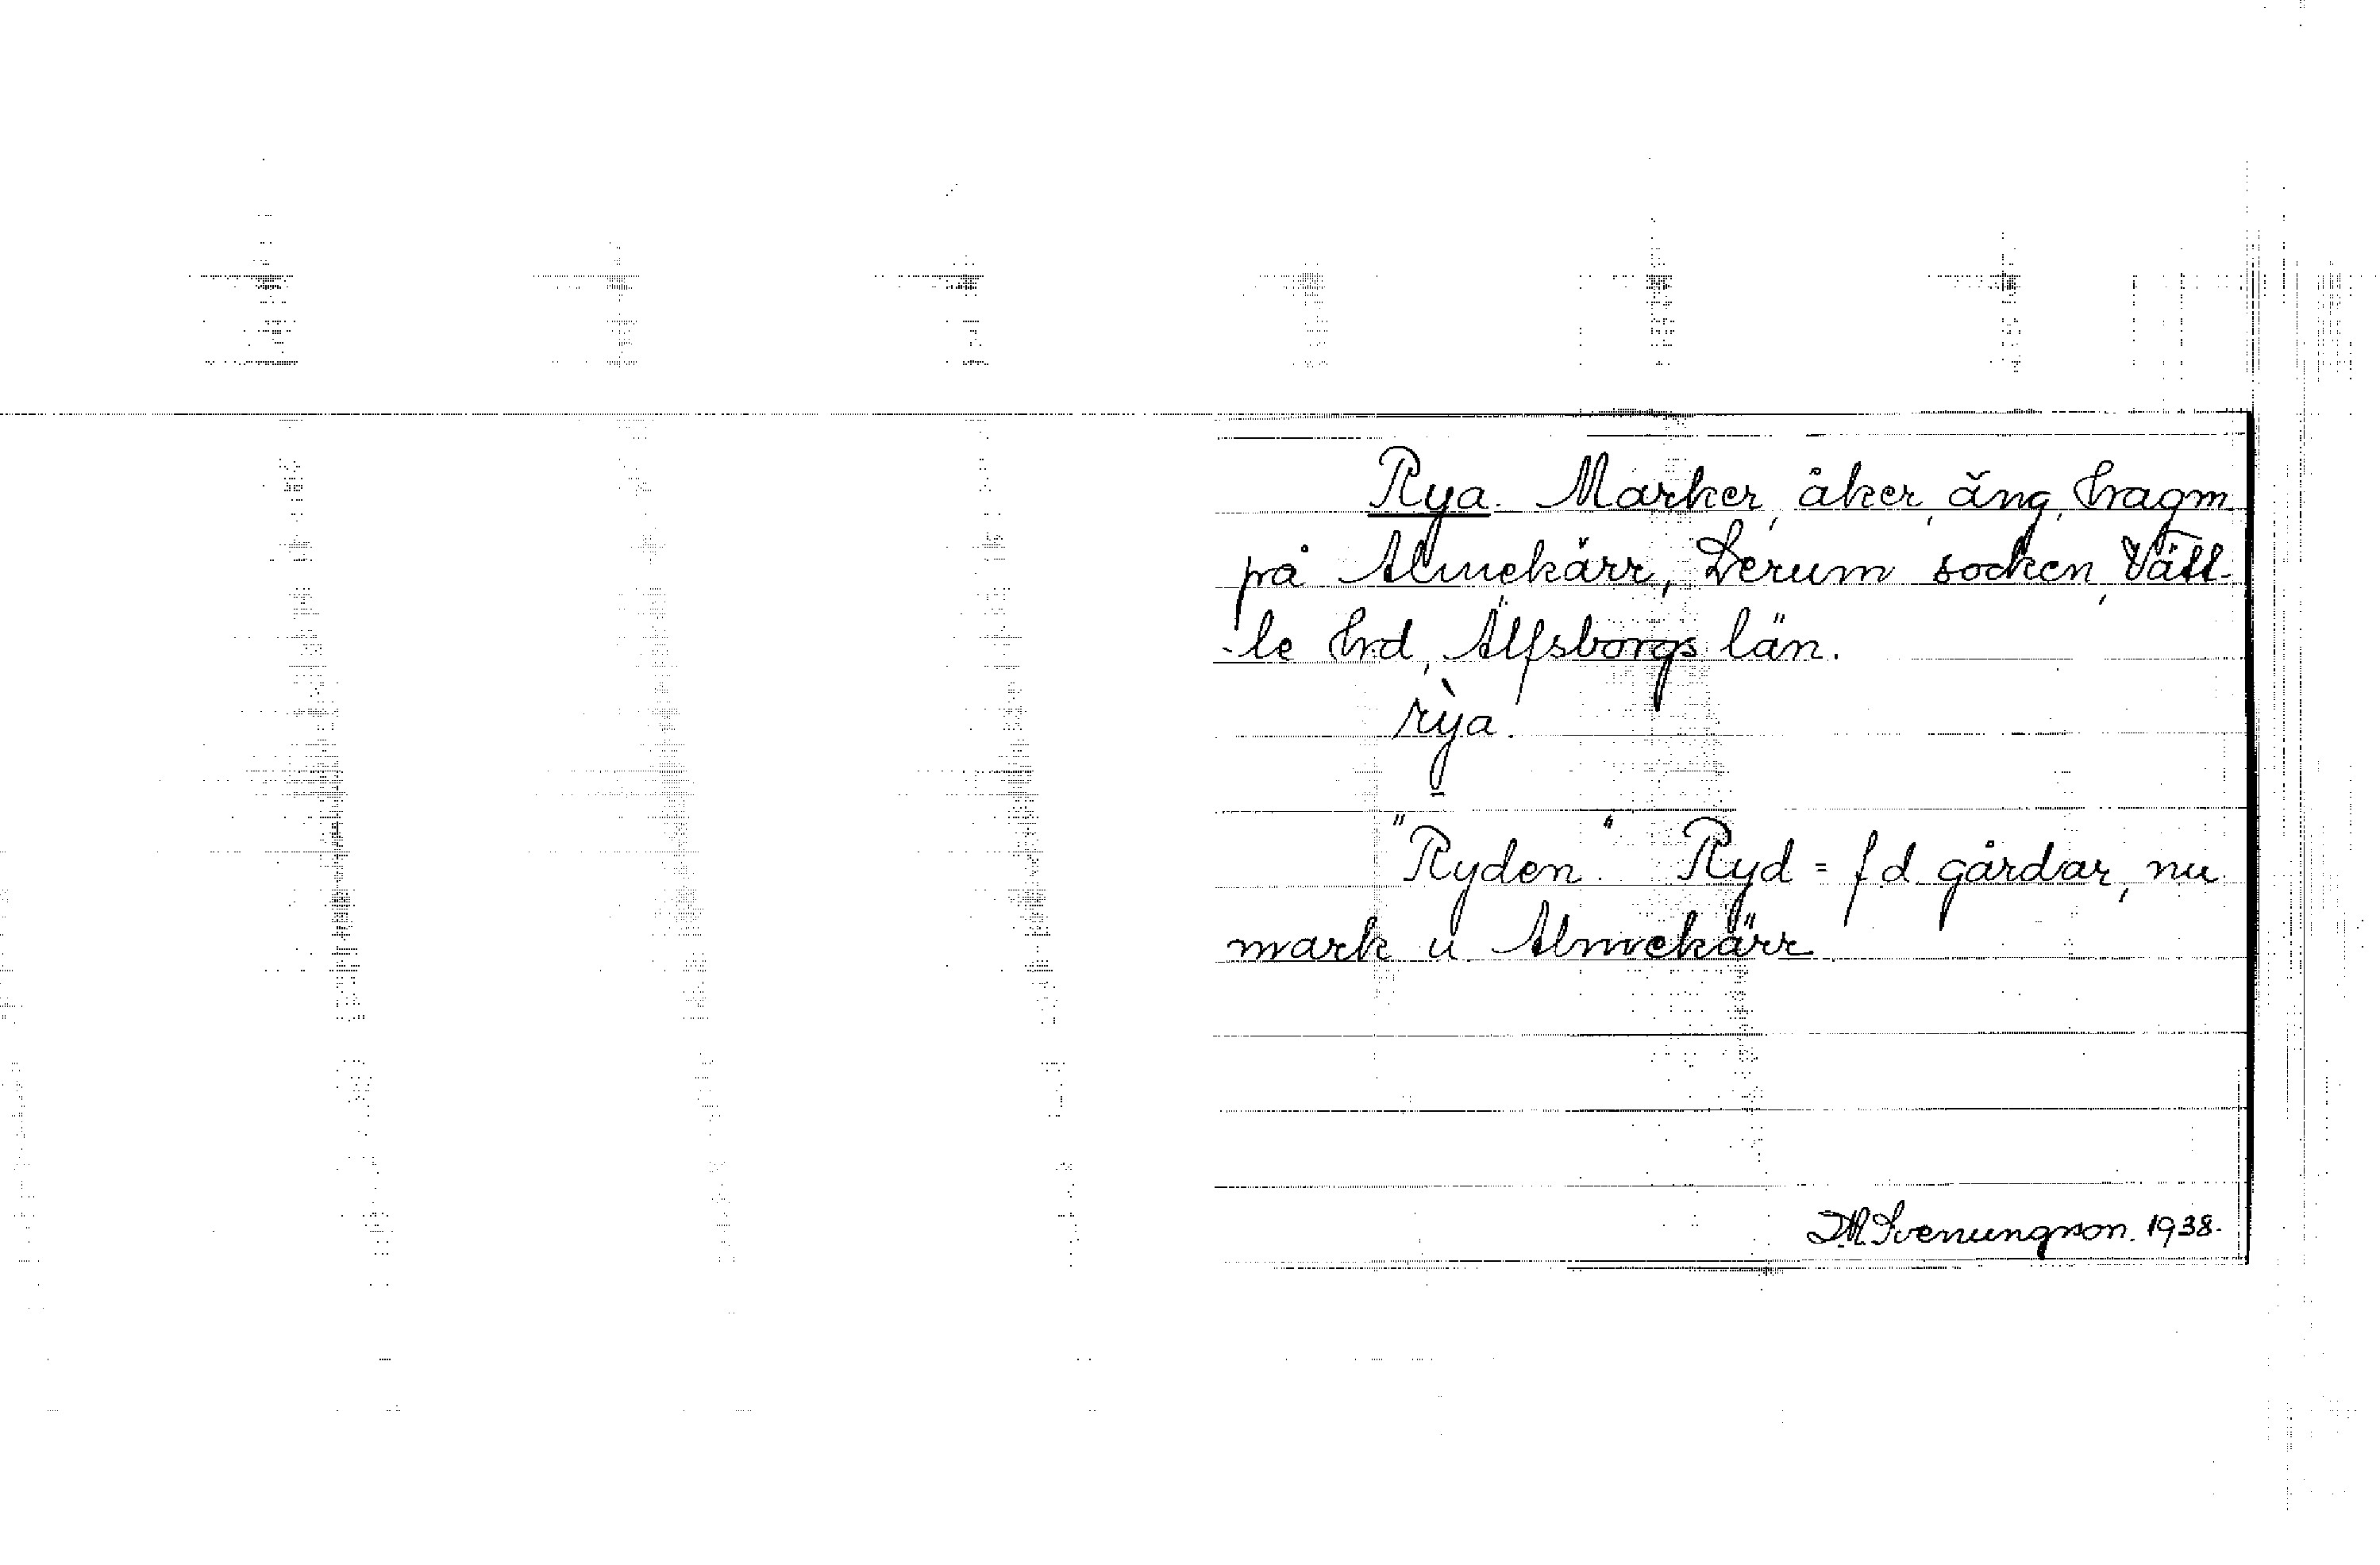 Rya. Marker, åker, äng, hagm
på Almekärr, Lerum socken, Vätt-
-le hrd, Älfsborgs län.
rỳa.
"Ryden." Ryd = f d gårdar, nu
mark u Almekärr
Svenungson. 1938.